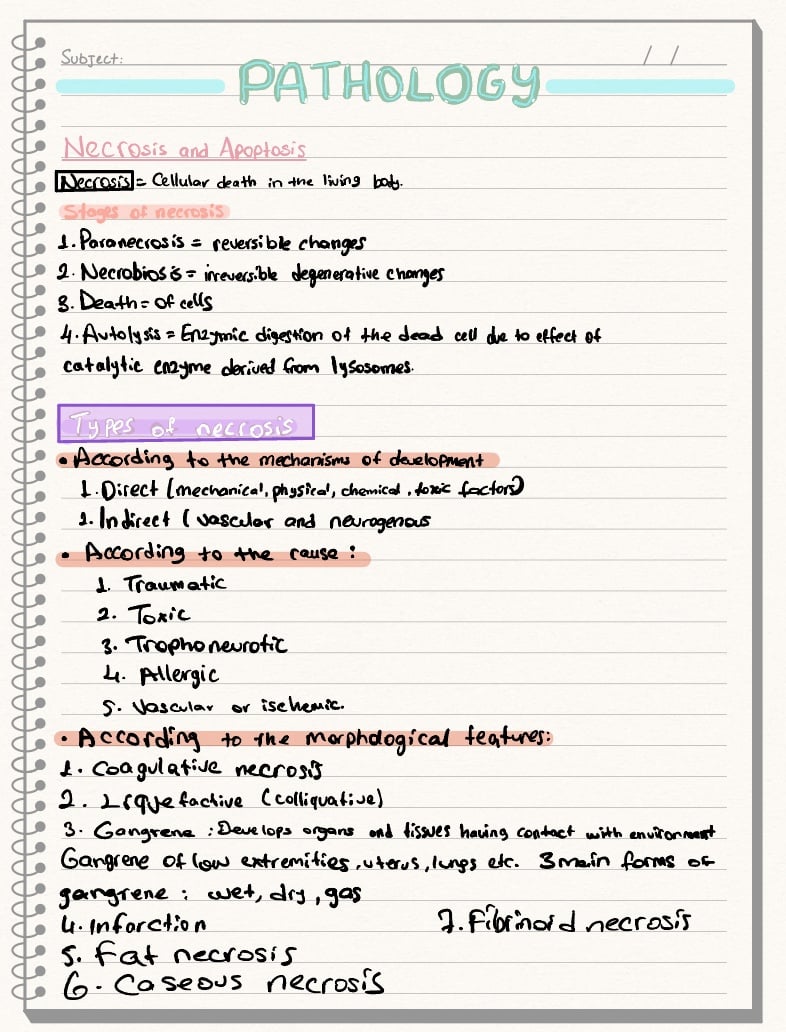 Subject: / /
PATHOLOGY
Necrosis and Apoptosis
Necrosis = Cellular death in the living body.
Stages of necrosis
1. Paranecrosis = reversible changes
2. Necrobiosis = irreversible degenerative changes
3. Death = of cells
4. Autolysis = Enzymic digestion of the dead cell due to effect of
catalytic enzyme derived from lysosomes.
Types of necrosis
• According to the mechanisms of development
1. Direct (mechanical, physical, chemical, toxic factors)
2. Indirect ( vascular and neurogenous
• According to the cause :
1. Traumatic
2. Toxic
3. Trophoneurotic
4. Allergic
5. Vascular or ischemic.
• According to the morphological features:
1. Coagulative necrosis
2. Liquefactive (colliquative)
3. Gangrene : Develops organs and tissues having contact with environment
Gangrene of low extremities, uterus, lungs etc. 3 main forms of
gangrene : wet, dry, gas
4. Infarction 7. Fibrinoid necrosis
5. Fat necrosis
6. Caseous necrosis